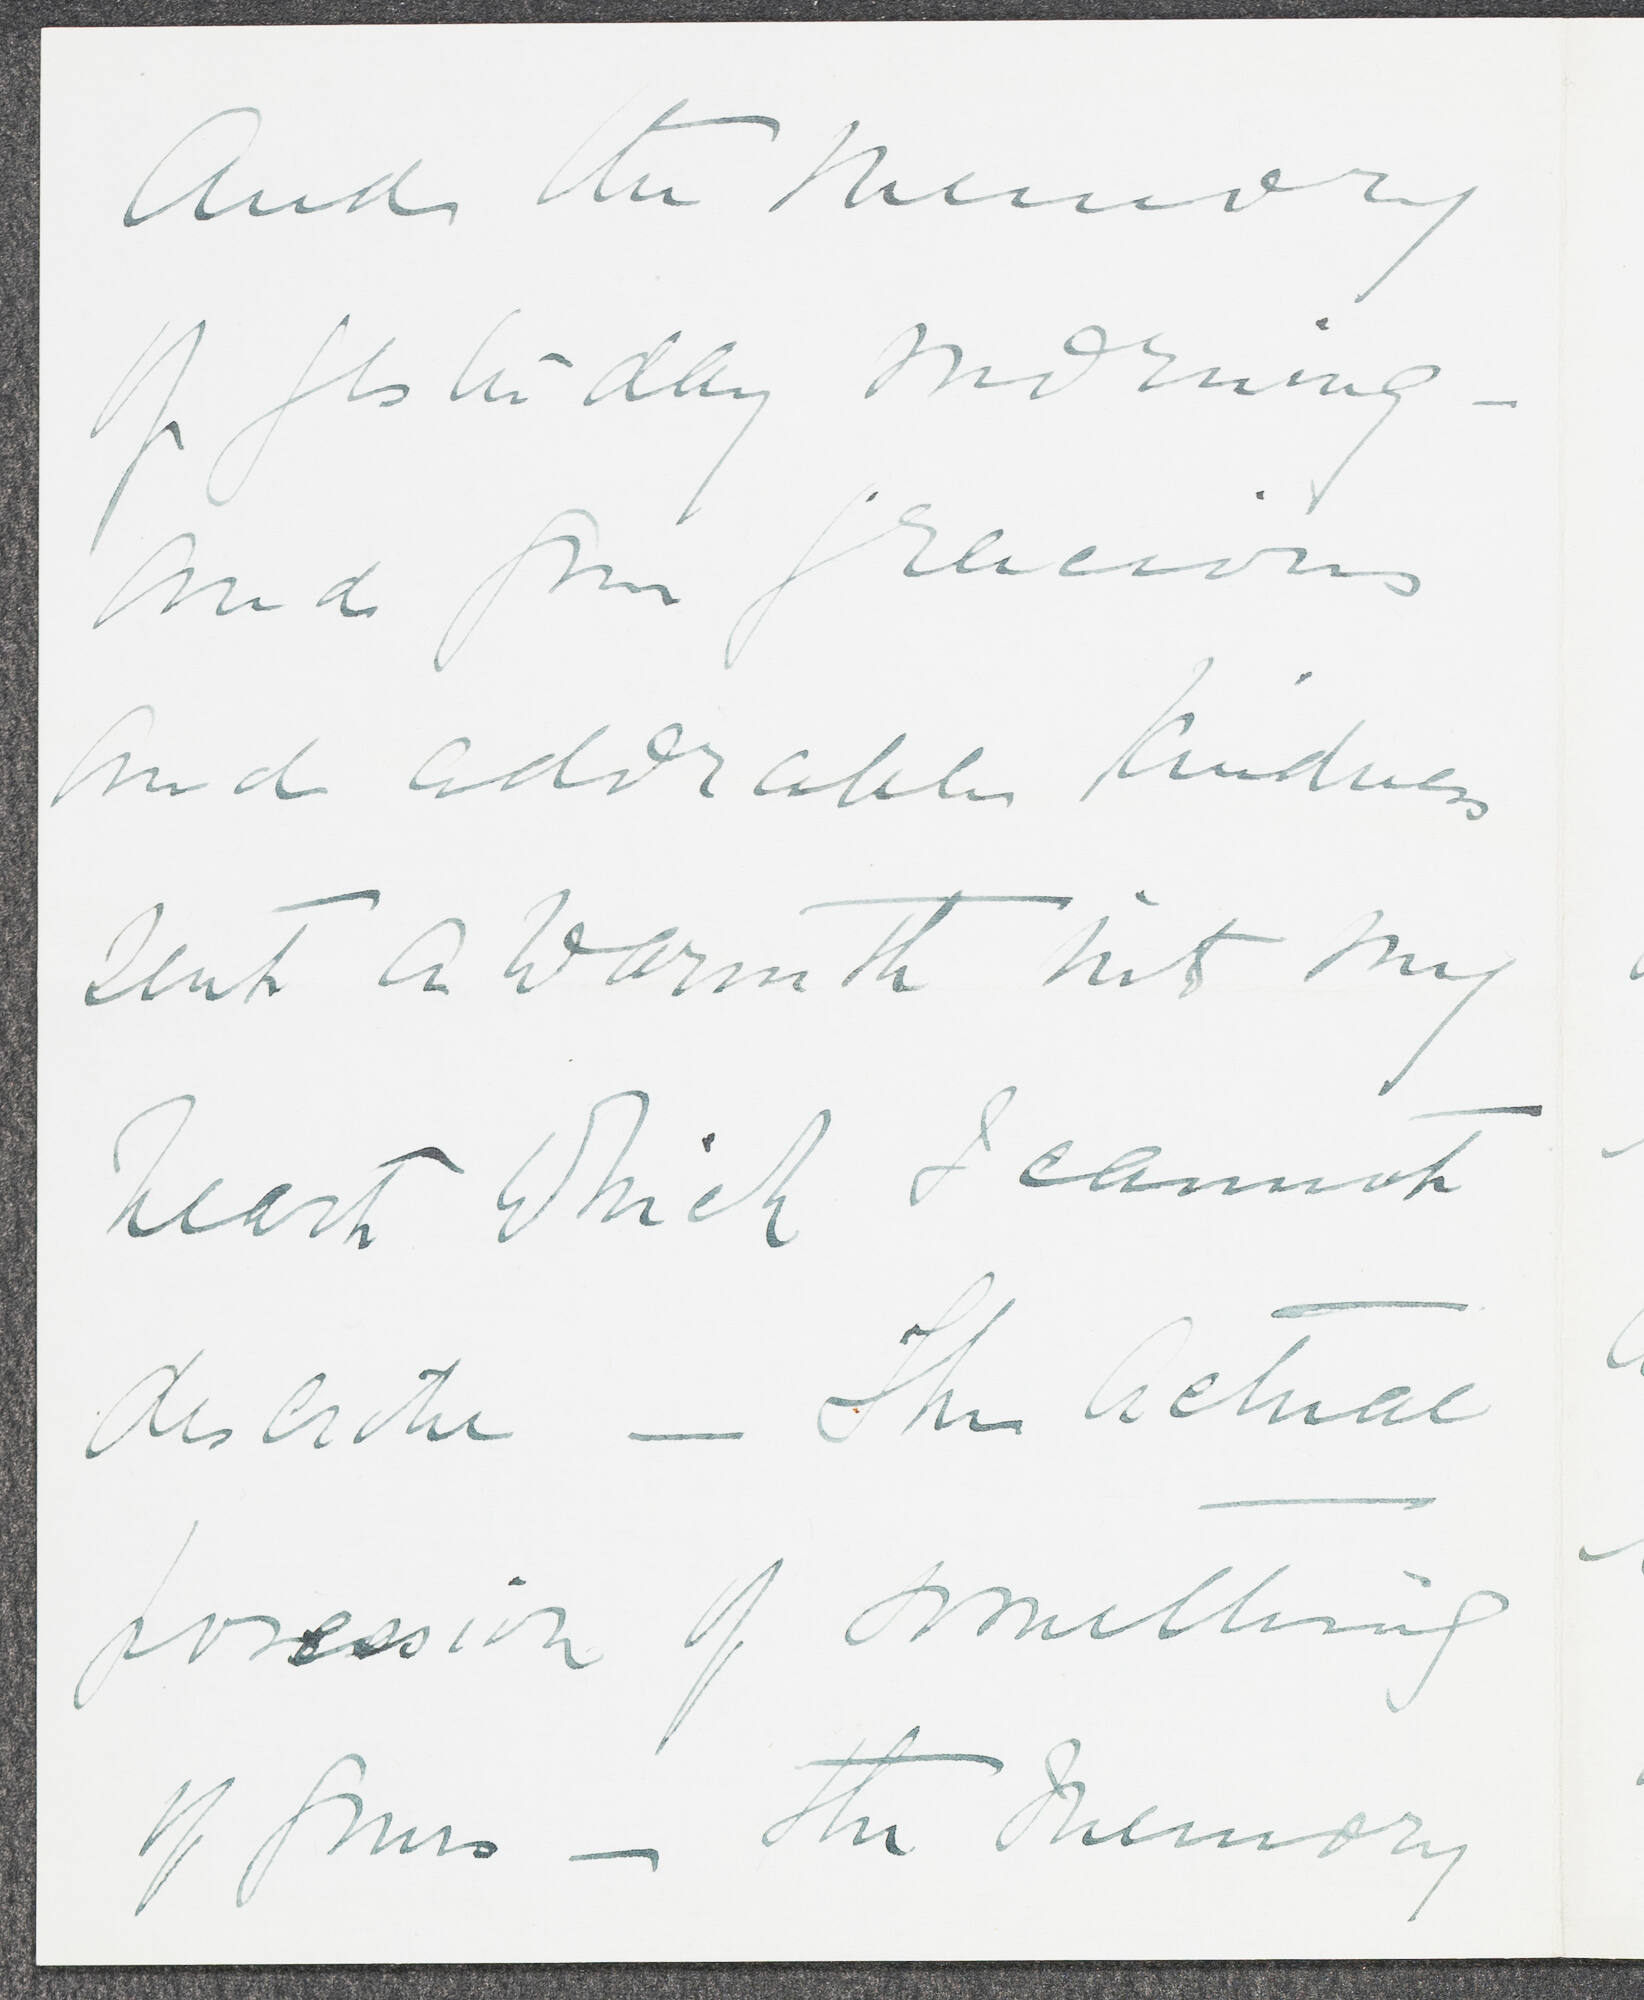 And the memory
of yesterday morning -
and your gracious
and adorable kindness
sent a warmth into my
heart which I cannot
describe — The actual
possession of something
of yours — the memory